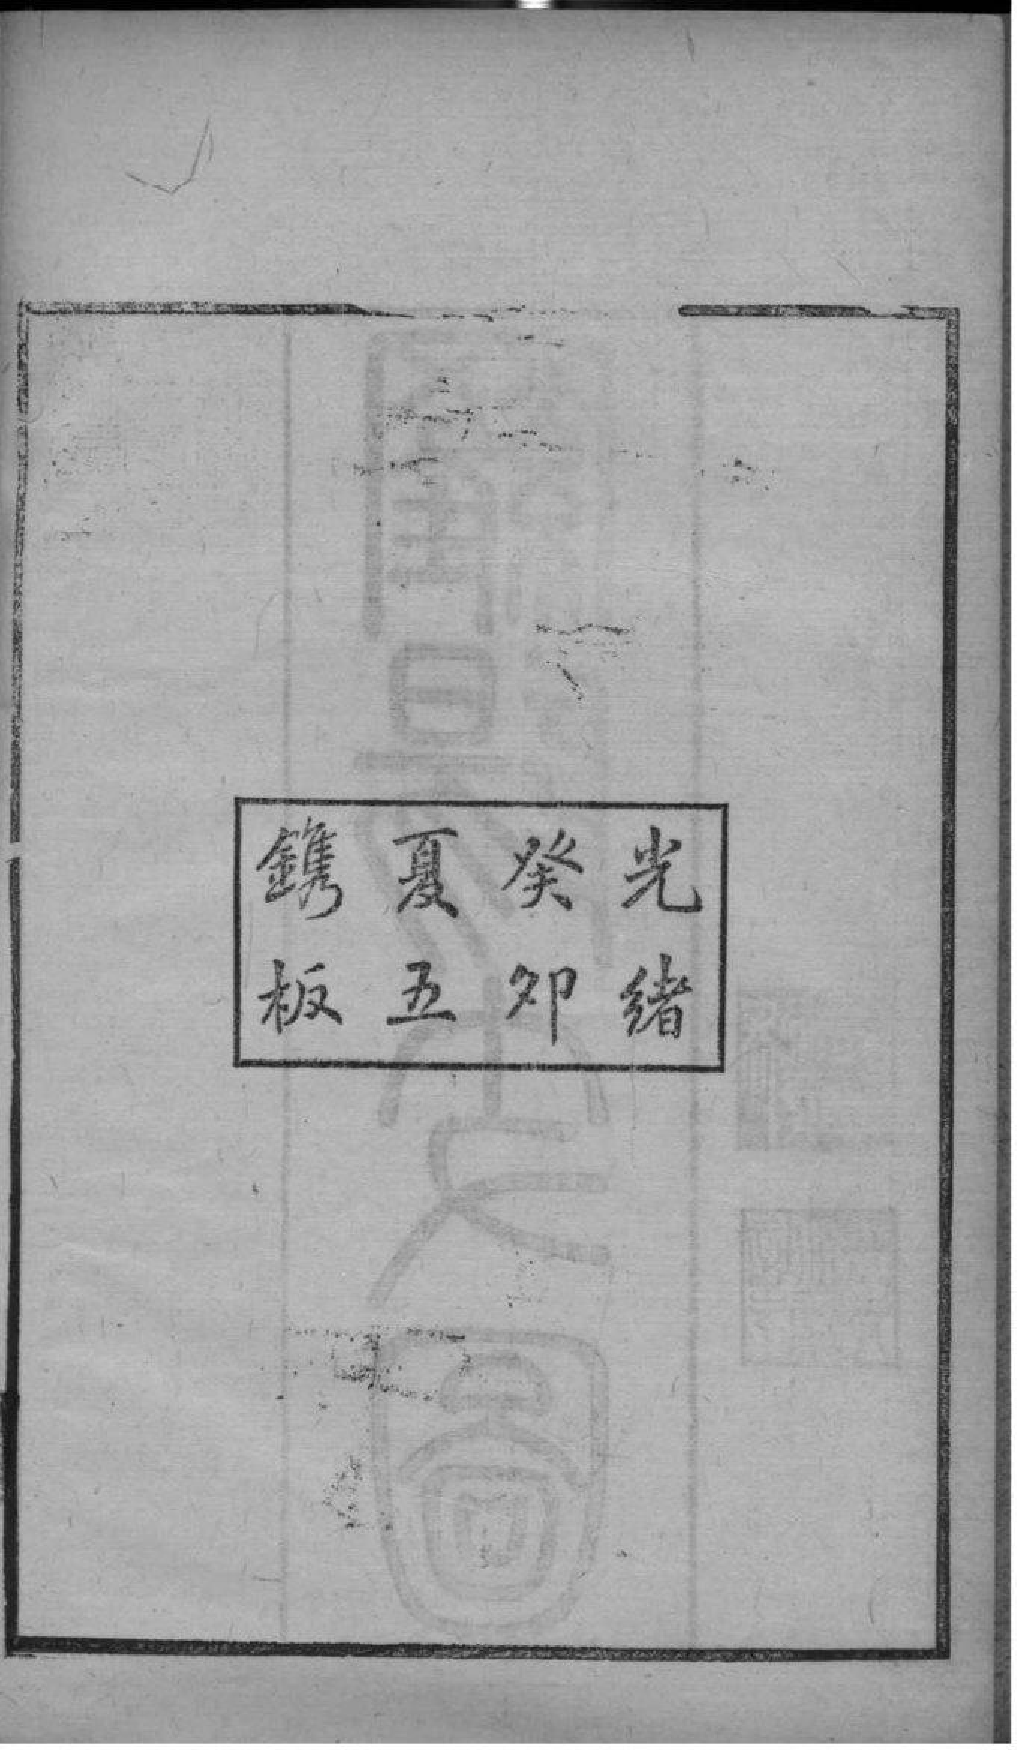 光緒
癸卯
夏五
鐫板